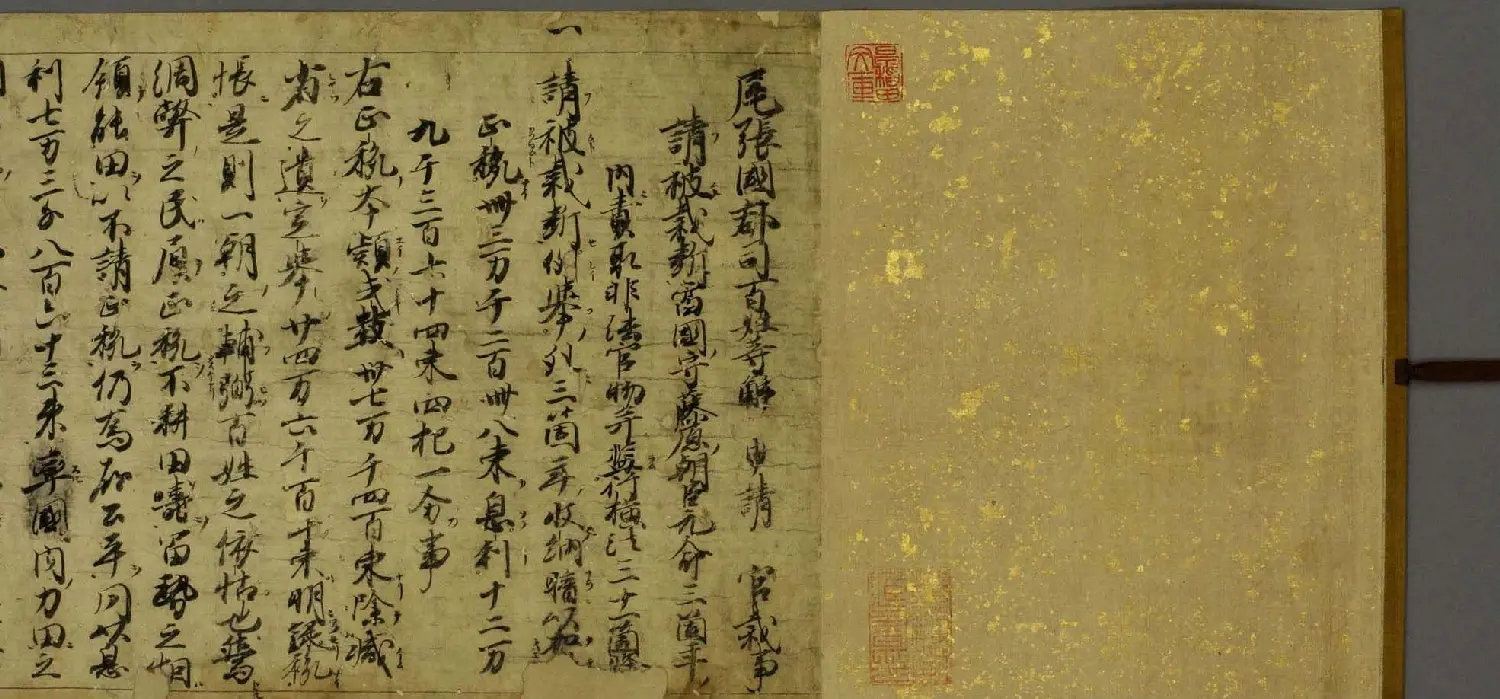 尾張國郡司百姓等解 申請 官裁事
請被裁斷當國守藤原朝臣元命三箇年
内責取非法官物幷濫行橫法三十一箇條
一
請被裁斷例擧外三箇年收納暗以
正税卌三万千二百卌八束息利十二万
九千三百七十四束四把一分事
右正税本穎式數卌七万千四百束除減
省之遺定擧廿四万六千百十束明錄税
帳是則一朝之輔弼百姓之依怙也舊
凋弊之民負正税不耕田疇留勢之烟
領能田以不請正税仍爲 公平同以息
利七万三千八百六十三束率國内力田之